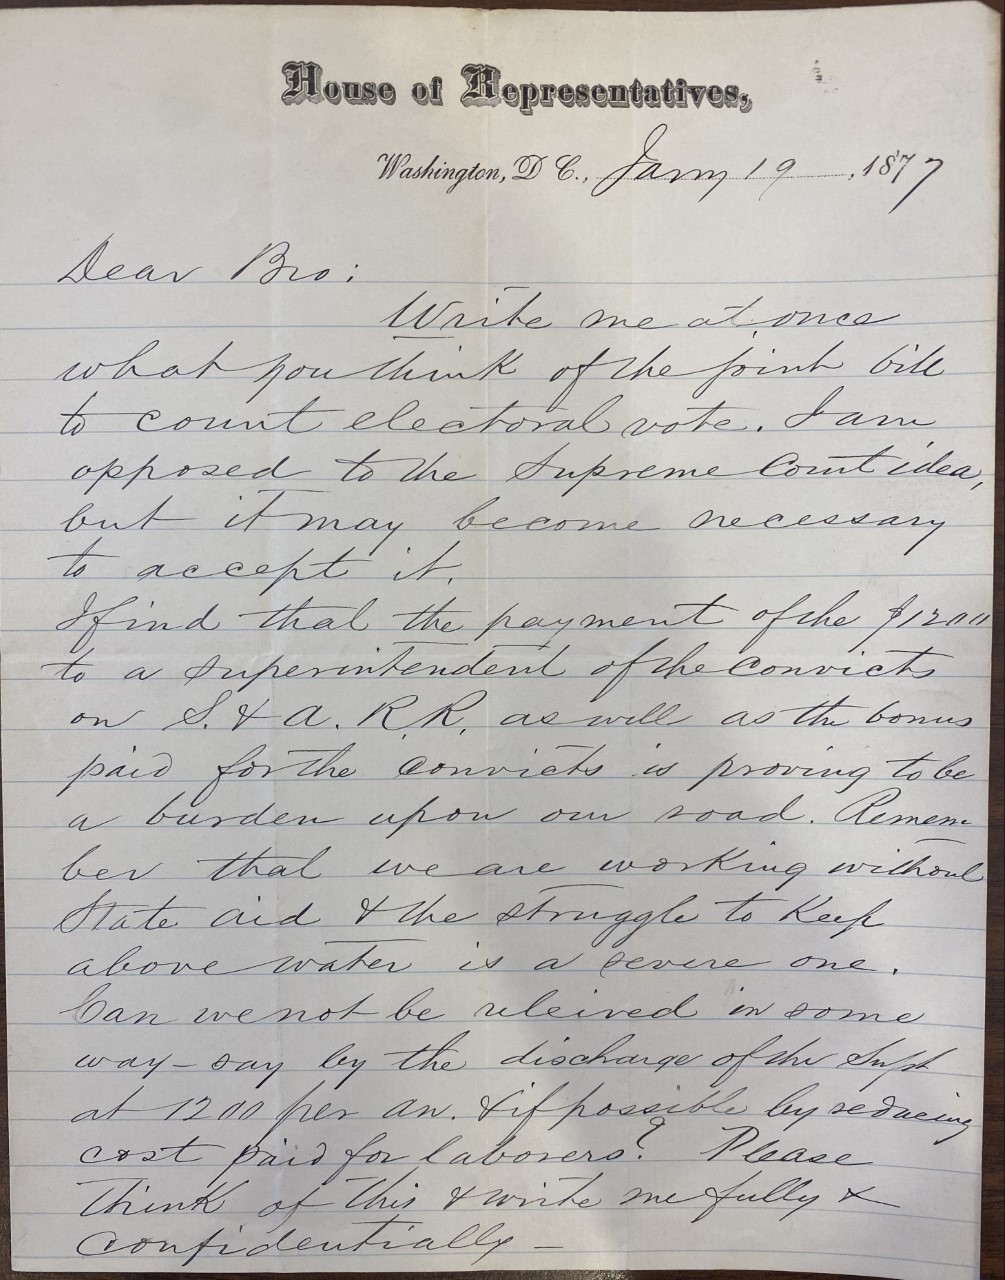 House of Representatives,
Washington, D C., Jany 19, 1877
Dear Bro:
Write me at once
what you think of the joint bill
to count electoral vote. I am
opposed to the Supreme Court idea,
but it may become necessary
to accept it.
I find that the payment of the $1200
to a superintendent of the convicts
on S. & A. R.R. as well as the bonus
paid for the convicts is proving to be
a burden upon our road. Remem-
ber that we are working without
State aid & the struggle to keep
above water is a severe one.
Can we not be releived in some
way - say by the discharge of the Supt
at 1200 per an. & if possible by reducing
cost paid for laborers? Please
think of this & write me fully &
confidentially -